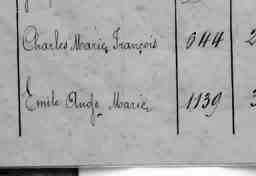 Charles Marie François 644 2
Emile Ange Marie 1139 3